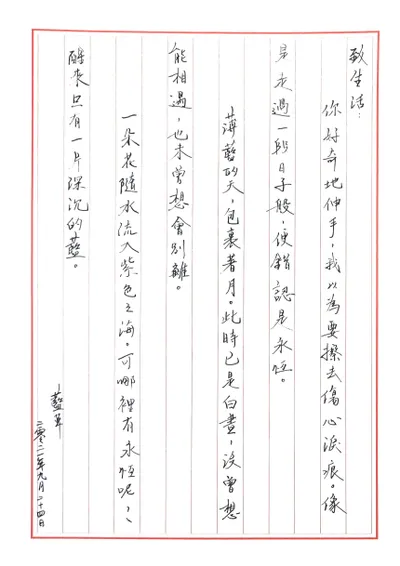 致生活：
你好奇地伸手，我以為要擦去傷心淚痕。像
是走過一段日子般，便錯認是永恆。
薄藍的天，包裹著月。此時已是白晝，沒曾想
能相遇，也未曾想會別離。
一朵花隨水流入紫色之海。可哪裡有永恆呢，
醒來只有一片深沉的藍。
藍草
二零二一年九月二十四日